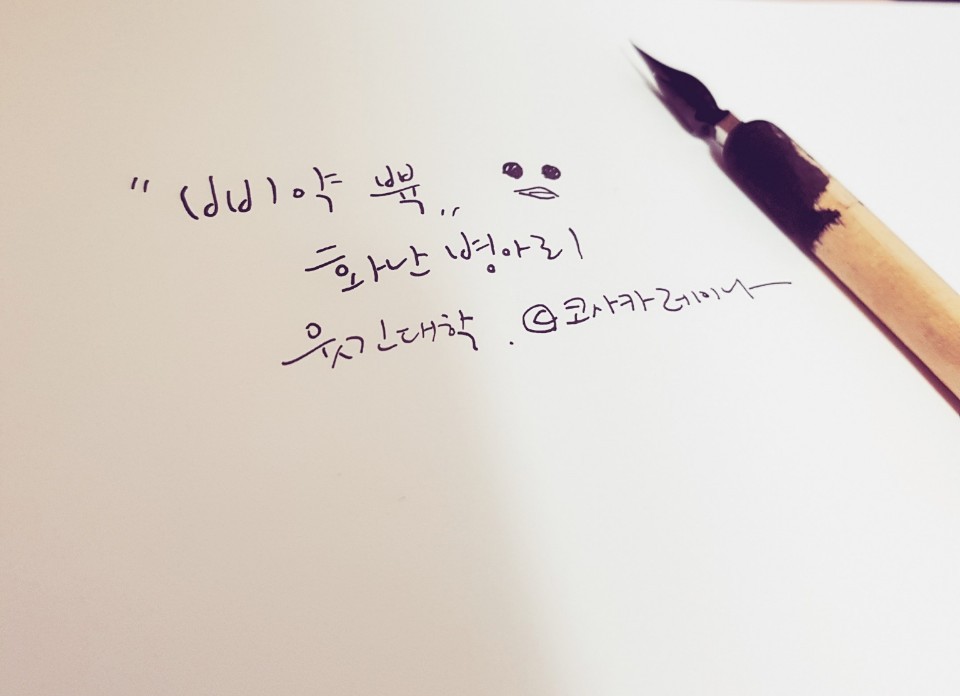 "삐약 뿍"
화난 병아리
웃긴대학 . ©코사카레이나